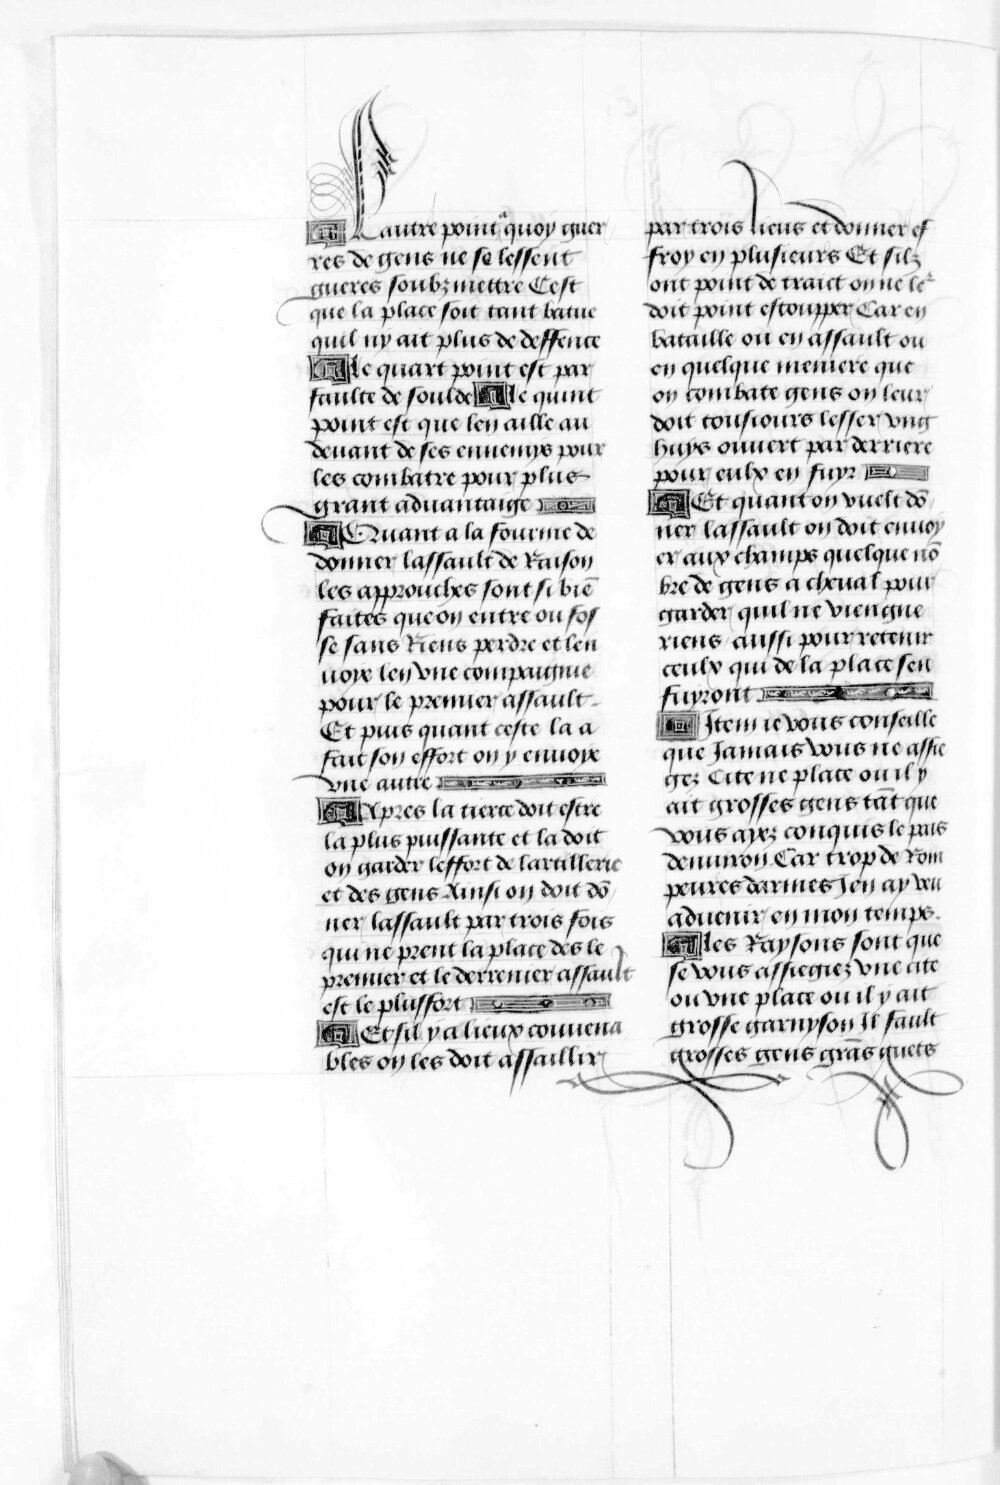 Lautre point a quoy guer
res de gens ne se lessent
gueres soubzmettre Cest
que la place soit tant batue
quil ny ait plus de deffence
le quart point est par
faulte de soulde le quint
point est que len aille au
devant de ses ennemys pour
les combatre pour plus
grant aduantaige
Quant a la fourme de
donner lassault de Raison
les approuches sont si biē
faites que on entre ou fos
se sans Riens perdre et len
uoye len vne compaignie
pour le premier assault
Et puis quant ceste la a
fait son effort on y envoye
vne autre
Apres la tierce doit estre
la plus puissante et la doit
on garder leffort de lartillerie
et des gens Ainsi on doit dō
ner lassault par trois fois
qui ne prent la place des le
premier et le derrenier assault
est le plus fort
Et sil y a lieux conuena
bles on les doit assaillir
par trois lieus et donner ef
froy en plusieurs Et silz
ont point de traict on ne le
doit point estoupper Car en
bataille ou en assault ou
en quelque meniere que
on combate gens on leur
doit tousiours lesser vng
huys ouuert par derriere
pour eulx en fuyr
Et quant on vuelt dō
ner lassault on doit enuoy
er aux champs quelque nō
bre de gens a cheual pour
garder quil ne viengne
riens aussi pour retenir
ceulx qui de la place sen
fuyront
Item ie vous conseille
que Jamais vous ne assie
gez Cite ne place ou il y
ait grosses gens tāt que
vous ayez conquis le pais
denuiron Car trop de Rom
peures darmes Jen ay veu
aduenir en mon temps.
les Raysons sont que
se vous assiegiez vne cite
ou vne place ou il y ait
grosse garnyson Il fault
grosses gens grās guets